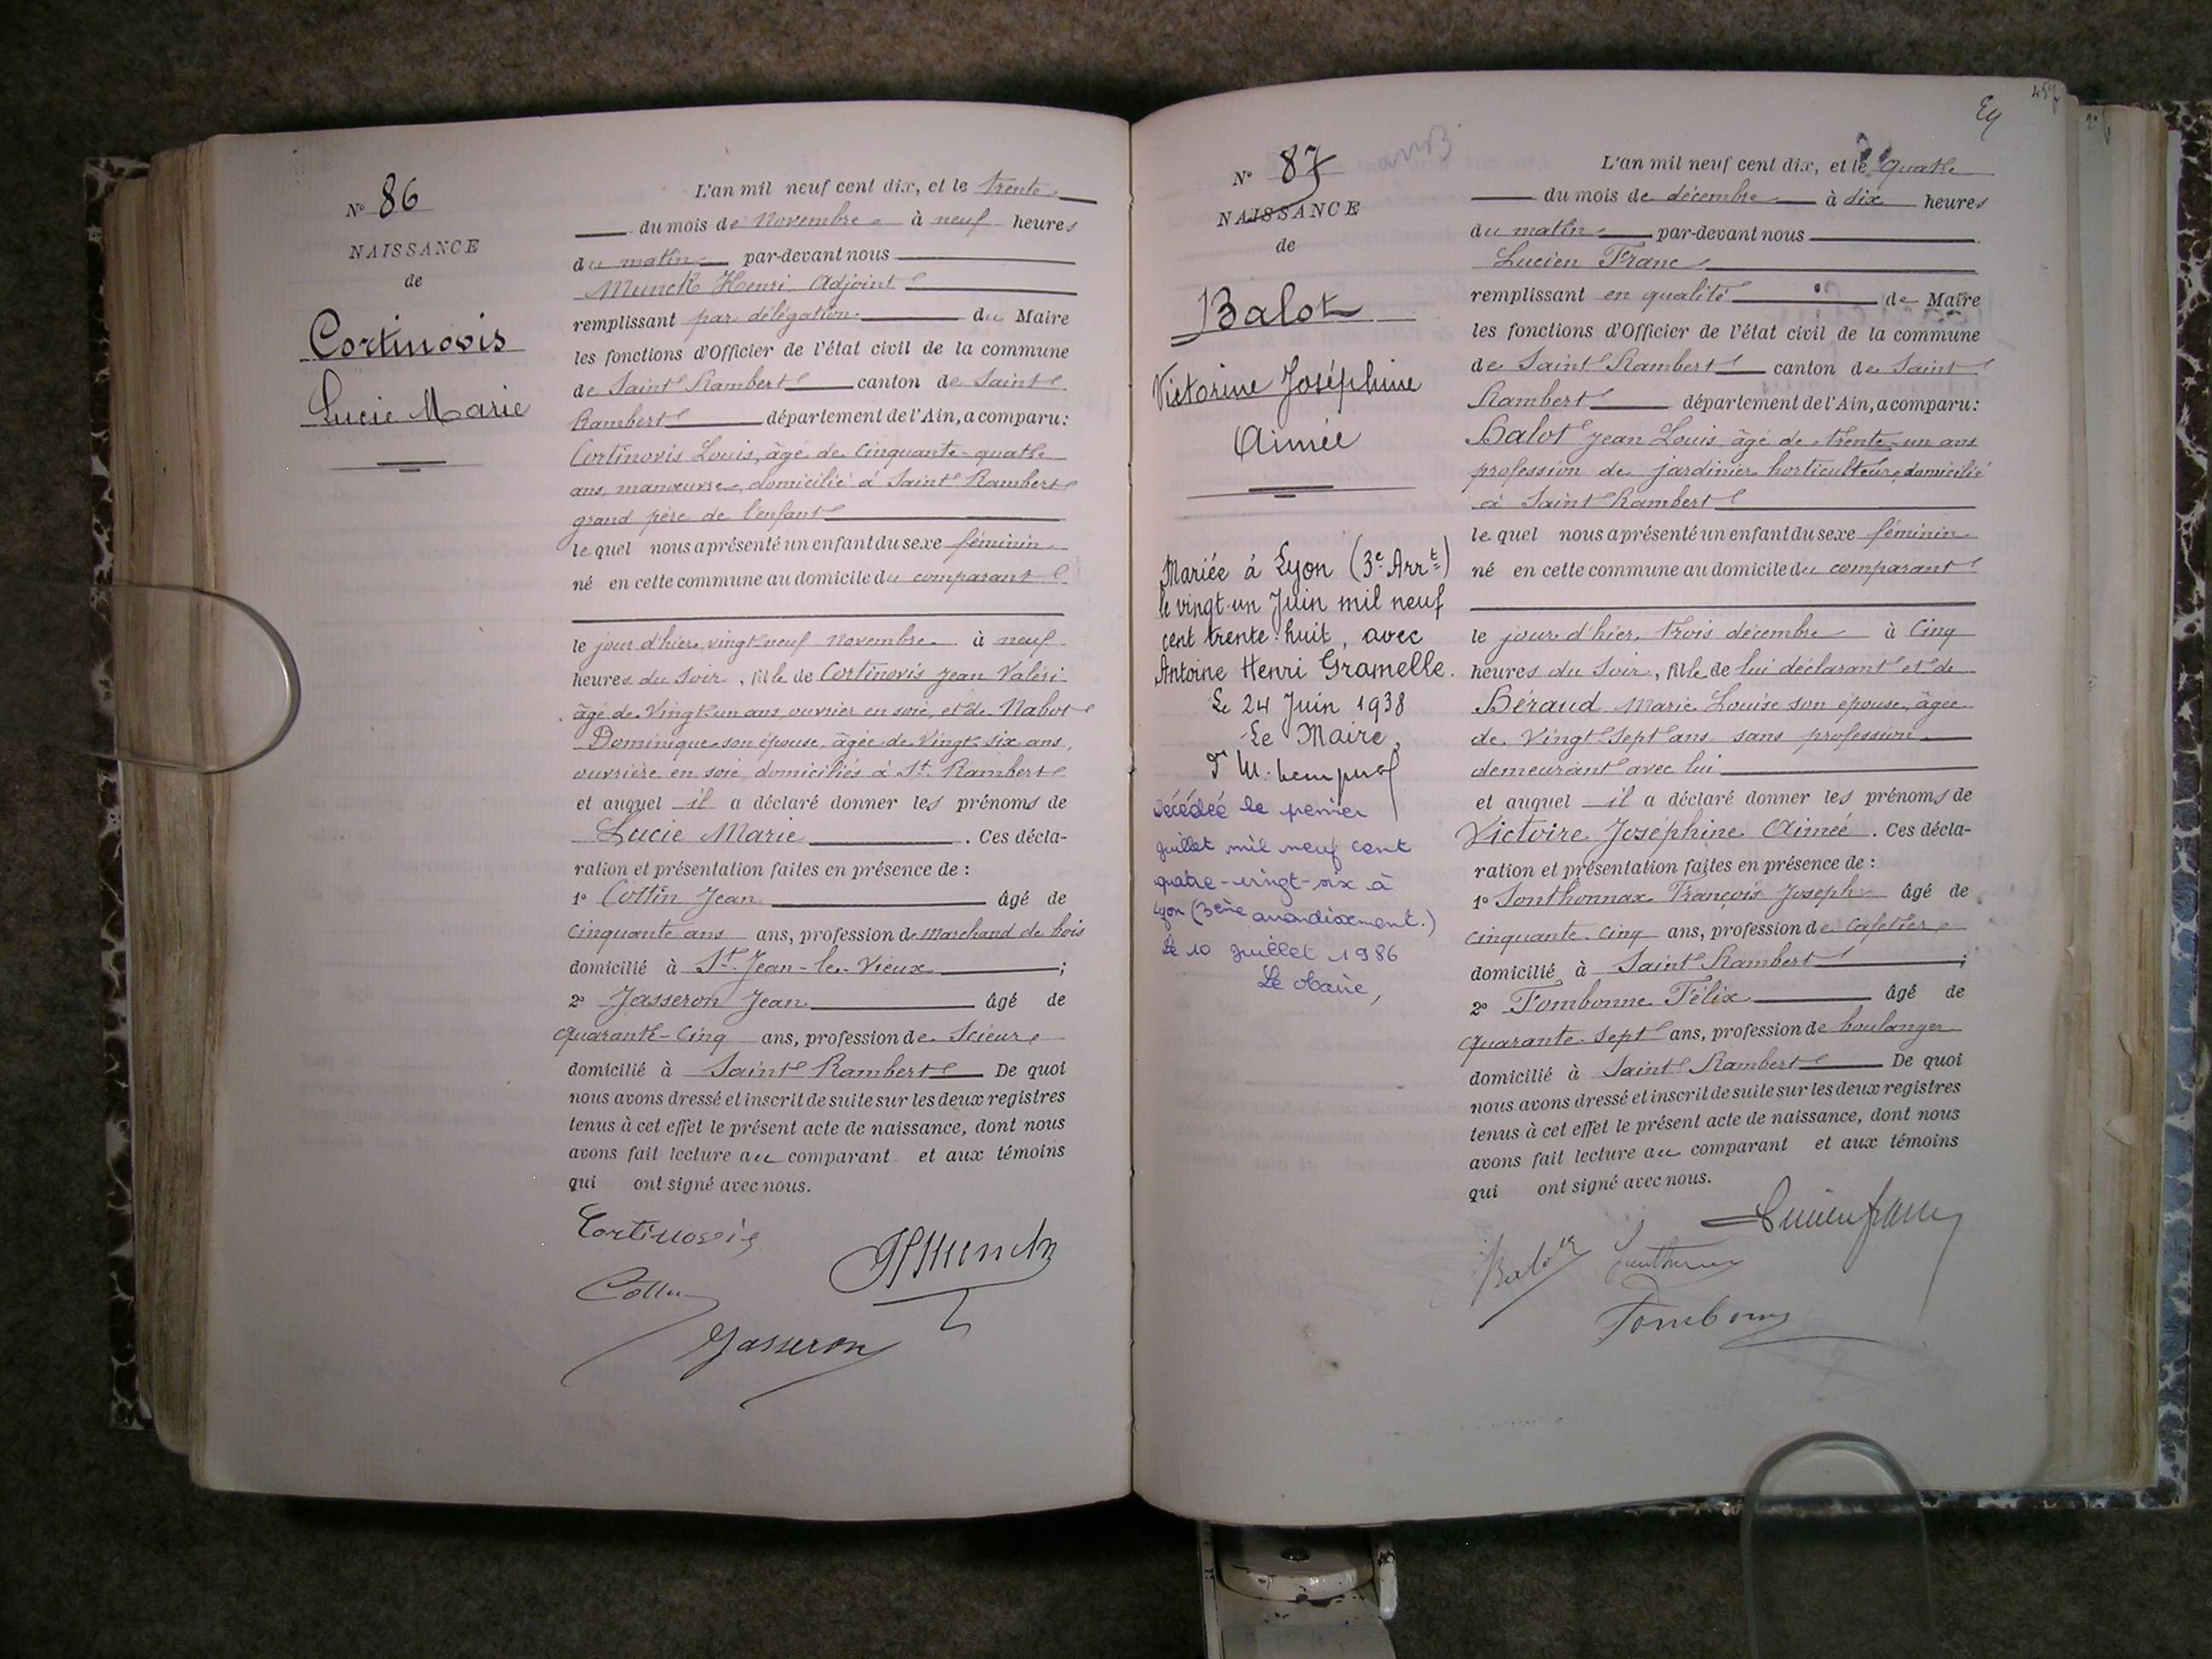 N° 86
NAISSANCE
de
Cortinovis
Lucie Marie
L'an mil neuf cent dix, et le trente
du mois de Novembre à neuf heures
du matin par-devant nous
Munck Henri Adjoint
remplissant par délégation du Maire
les fonctions d'Officier de l'état civil de la commune
de Saint Rambert canton de Saint
Rambert département de l'Ain, a comparu:
Cortinovis Louis, âgé de Cinquante-quatre
ans, manœuvre, domicilié à Saint Rambert
grand père de l'enfant
le quel nous a présenté un enfant du sexe féminin
né en cette commune au domicile du comparant
le jour d'hier, vingt-neuf novembre à neuf
heures du soir, fille de Cortinovis Jean Valéri
âgé de Vingt-un ans, ouvrier en soie, et de Nabot
Dominique son épouse, âgée de Vingt-six ans,
ouvrière en soie, domiciliés à St. Rambert
et auquel il a déclaré donner les prénoms de
Lucie Marie. Ces décla-
ration et présentation faites en présence de :
1° Cottin Jean âgé de
Cinquante ans ans, profession de Marchand de bois
domicilié à St. Jean-le-Vieux ;
2° Jasseron Jean âgé de
Quarante-Cinq ans, profession de Scieur
domicilié à Saint Rambert De quoi
nous avons dressé et inscrit de suite sur les deux registres
tenus à cet effet le présent acte de naissance, dont nous
avons fait lecture au comparant et aux témoins
qui ont signé avec nous.
Cortinovis
HMunck
Cottin
Jasseron
Ey
457
2e
N° 87
NAISSANCE
de
Balot
Victorine Joséphine
Aimée
Mariée à Lyon (3e Arrt)
le vingt-un Juin mil neuf
cent trente-huit, avec
Antoine Henri Gramelle.
Le 24 Juin 1938
Le Maire,
Décédée le premier
juillet mil neuf cent
quatre-vingt-six à
Lyon (3ème arrondissement.)
Le 10 juillet 1986
Le Maire,
L'an mil neuf cent dix, et le Quatre
du mois de décembre à dix heures
du matin par-devant nous
Lucien Franc
remplissant en qualité de Maire
les fonctions d'Officier de l'état civil de la commune
de Saint Rambert canton de Saint
Rambert département de l'Ain, a comparu:
Balot Jean Louis, âgé de trente-un ans
profession de jardinier horticulteur, domicilié
à Saint Rambert
le quel nous a présenté un enfant du sexe féminin
né en cette commune au domicile du comparant
le jour d'hier, trois décembre à Cinq
heures du soir, fille de lui déclarant et de
Béraud Marie Louise son épouse, âgée
de Vingt-Sept ans sans profession
demeurant avec lui
et auquel il a déclaré donner les prénoms de
Victoire Joséphine Aimée. Ces décla-
ration et présentation faites en présence de :
1° Sonthonnax François Joseph âgé de
Cinquante-cinq ans, profession de Cafetier
domicilié à Saint Rambert ;
2° Fombonne Félix âgé de
Quarante-Sept ans, profession de boulanger
domicilié à Saint Rambert De quoi
nous avons dressé et inscrit de suite sur les deux registres
tenus à cet effet le présent acte de naissance, dont nous
avons fait lecture au comparant et aux témoins
qui ont signé avec nous.
Lucien Franc
Balot
Fombonne